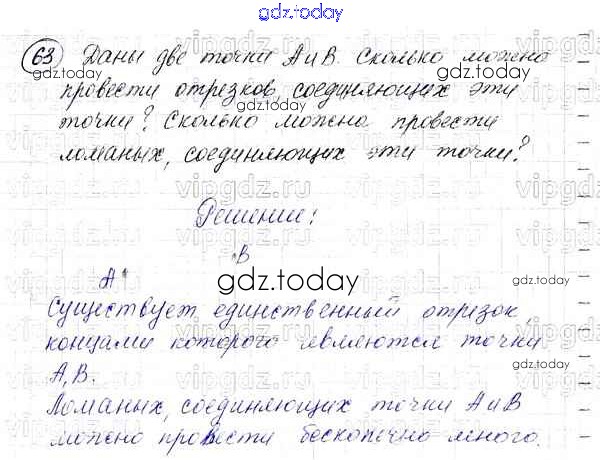 gdz.today
63 Даны две точки А и В. Сколько можно
gdz.today gdz.today
провести отрезков, соединяющих эти
точки? Сколько можно провести
ломаных, соединяющих эти точки?
vipgdz.ru vipgdz.ru vipgdz.ru
Решение:
В
А
gdz.today
Существует единственный отрезок,
концами которого являются точки
А, В.
Ломаных, соединяющих точки А и В
можно провести бесконечно много.
gdz.today gdz.today